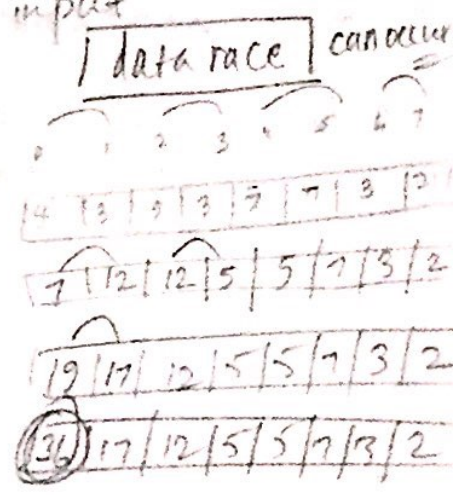 input
data race can occur
0 1 2 3 4 5 6 7
4 3 9 3 5 7 3 2
7 12 12 5 5 7 3 2
19 17 12 5 5 7 3 2
36 17 12 5 5 7 3 2